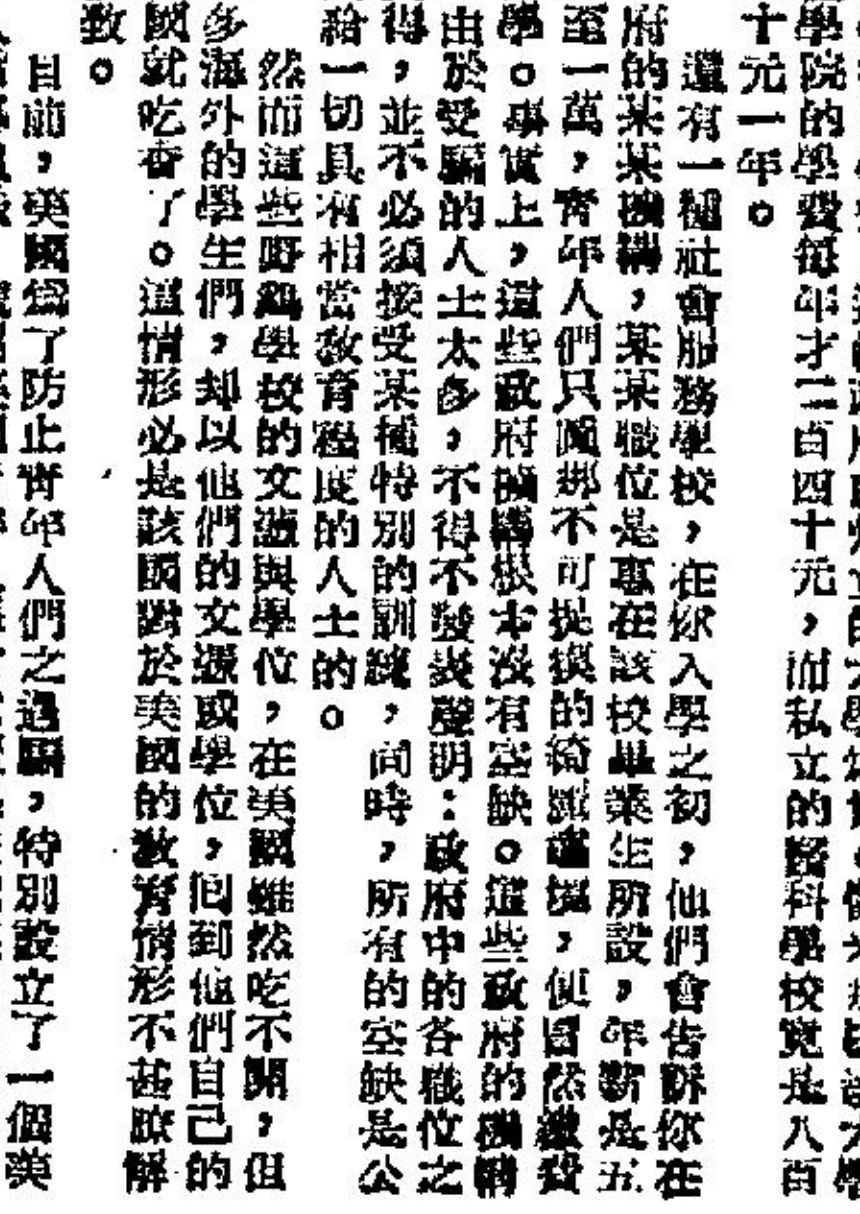 學院的學費每年才二百四十元，而私立的醫科學校竟是八百
十元一年。
還有一種社會服務學校，在你入學之初，他們會告訴你在
府的某某機構，某某職位是專在該校畢業生所設，年薪是五
至一萬，靑年人們只圖那不可捉摸的綺麗遠境，便冒然繳費
學。事實上，這些政府機構根本沒有空缺。這些政府的機構
由於受騙的人士太多，不得不發表聲明：政府中的各職位之
得，並不必須接受某種特別的訓練，同時，所有的空缺是公
給一切具有相當敎育程度的人士的。
然而這些野鷄學校的文憑與學位，在美國雖然吃不開，但
多海外的學生們，却以他們的文憑或學位，回到他們自己的
國就吃香了。這情形必是該國對於美國的敎育情形不甚瞭解
致。
目前，美國爲了防止靑年人們之過騙，特別設立了一個美